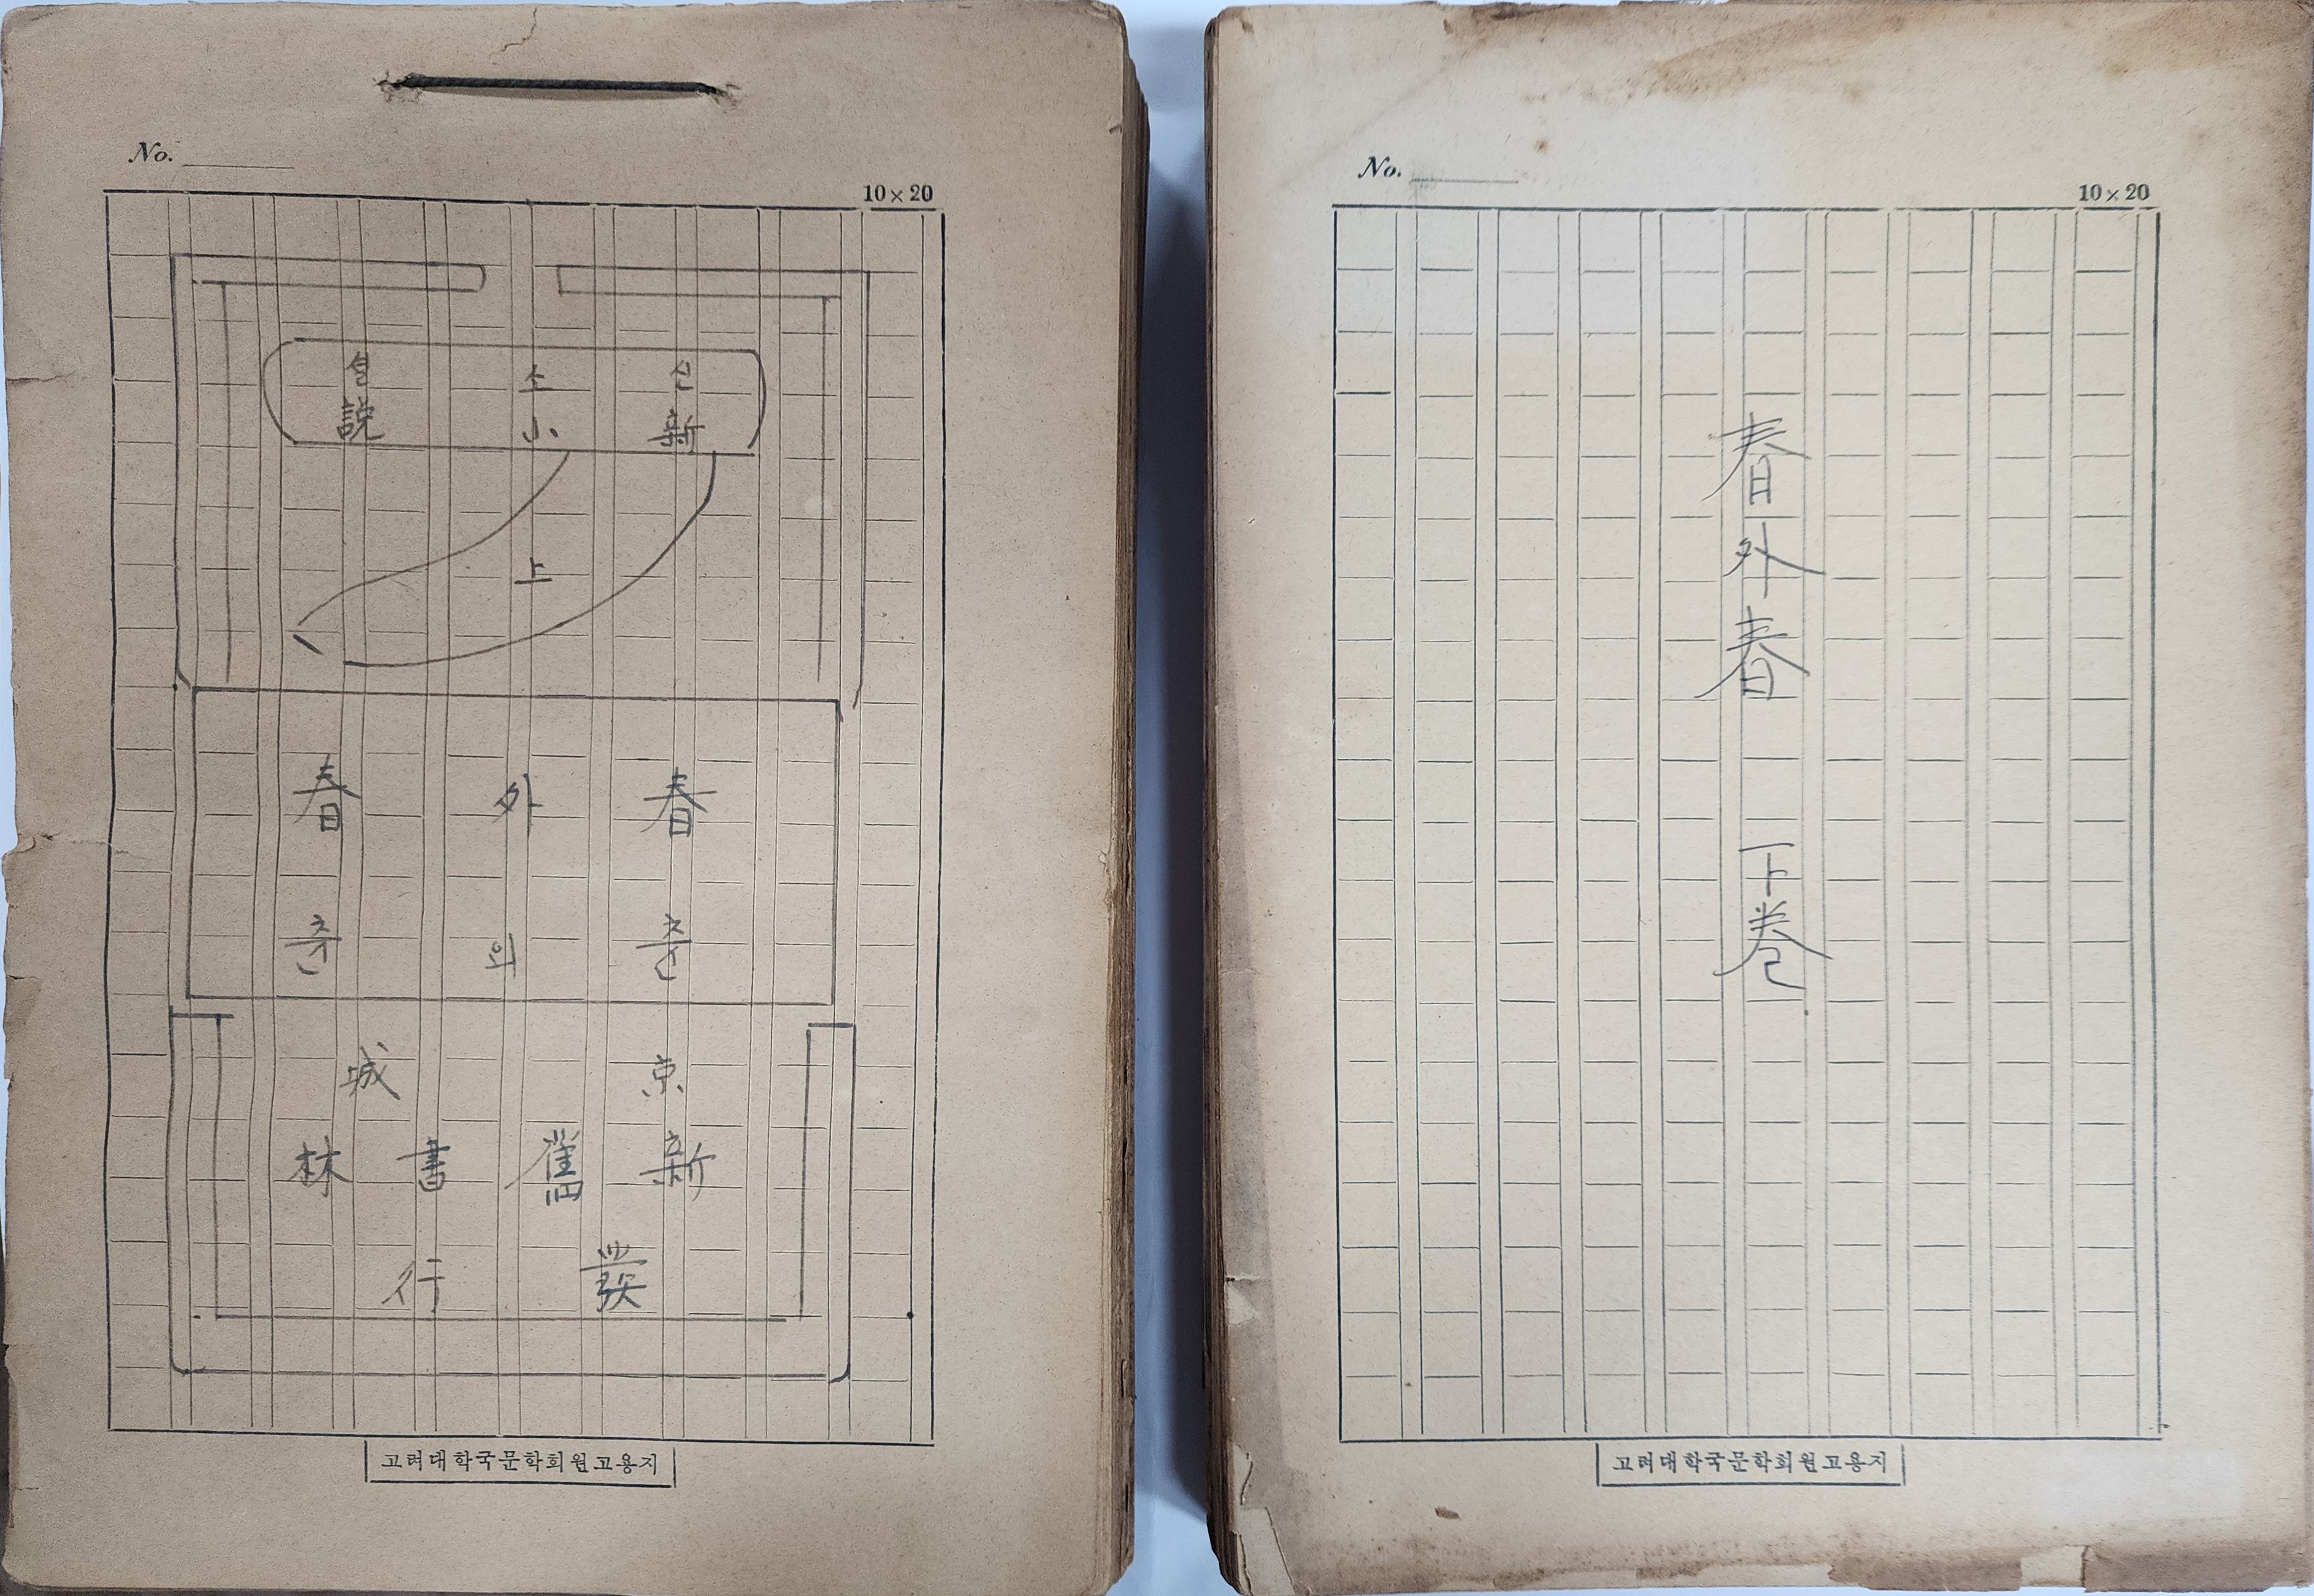 No.
10×20
신 소 설
新 小 説
上
春 外 春
춘 외 춘
京 城
新 舊 書 林
發 行
고려대학국문학회원고용지
No.
10×20
春外春 下卷
고려대학국문학회원고용지